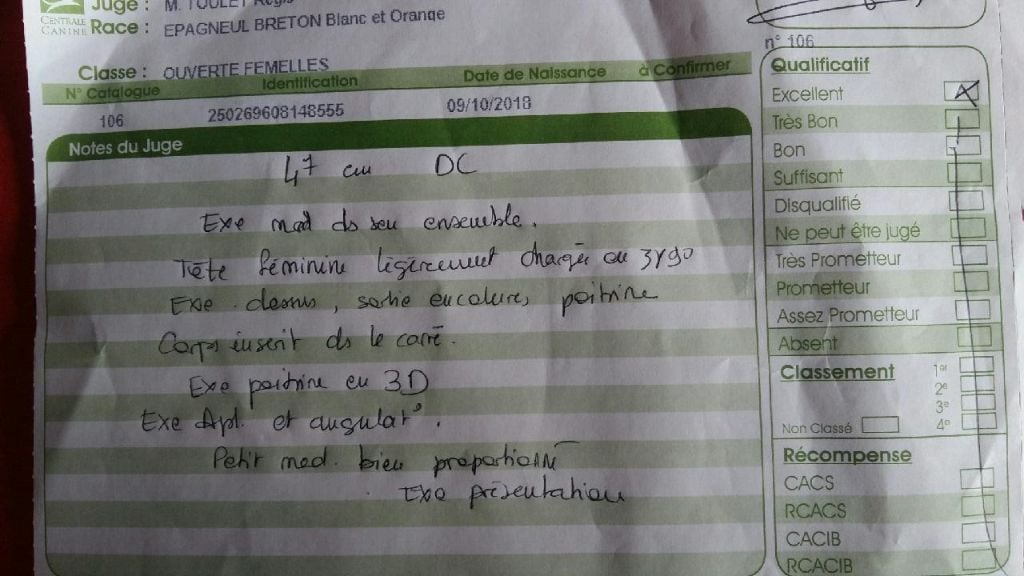 CENTRALE
CANINE
Juge : M. TOULET Régis
Race : EPAGNEUL BRETON Blanc et Orange
Classe : OUVERTE FEMELLES
N° Catalogue Identification Date de Naissance à Confirmer
106 250269608148555 09/10/2018
Notes du Juge
47 cm DC
Exe mod ds son ensemble.
Tête féminine légèrement chargée en zygo
Exe dessus, sortie encolure, poitrine
Corps inscrit ds le carré.
Exe poitrine en 3D
Exe Apl. et angulat°.
Petit mod. bien proportionné
Exe présentation
n° 106
Qualificatif
Excellent X
Très Bon
Bon
Suffisant
Disqualifié
Ne peut être jugé
Très Prometteur
Prometteur
Assez Prometteur
Absent
Classement 1er
2e
3e
Non Classé 4e
Récompense
CACS
RCACS
CACIB
RCACIB